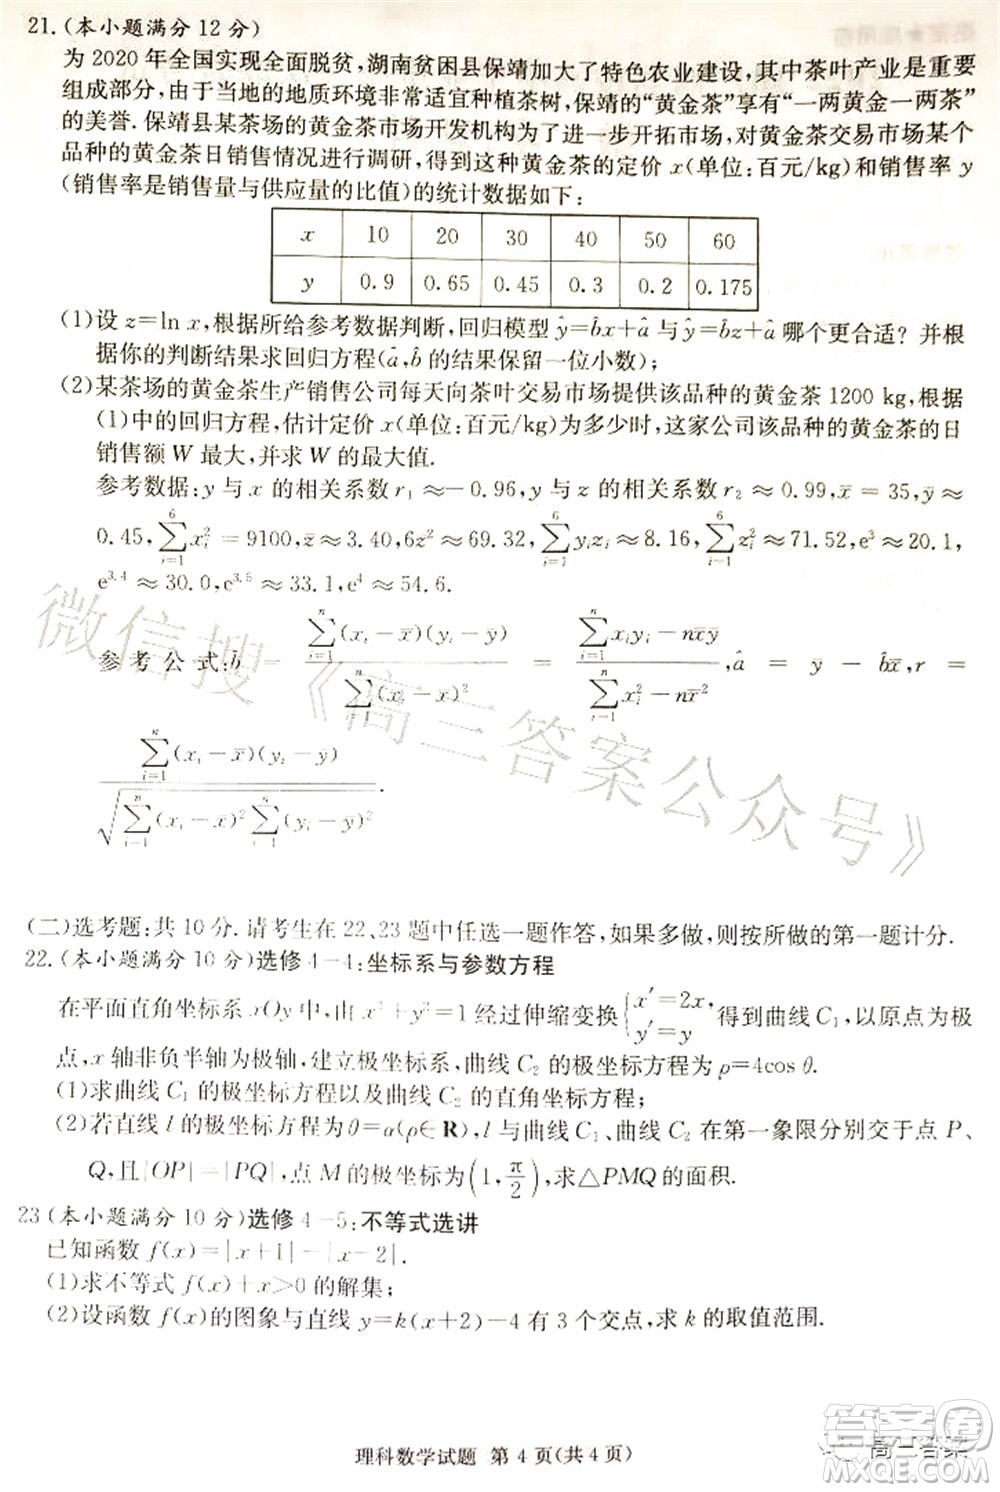 21.(本小题满分12分)
为2020年全国实现全面脱贫,湖南贫困县保靖加大了特色农业建设,其中茶叶产业是重要
组成部分,由于当地的地质环境非常适宜种植茶树,保靖的“黄金茶”享有“一两黄金一两茶”
的美誉.保靖县某茶场的黄金茶市场开发机构为了进一步开拓市场,对黄金茶交易市场某个
品种的黄金茶日销售情况进行调研,得到这种黄金茶的定价 x(单位:百元/kg)和销售率 y
(销售率是销售量与供应量的比值)的统计数据如下:
x 10 20 30 40 50 60
y 0.9 0.65 0.45 0.3 0.2 0.175
(1)设 z=ln x,根据所给参考数据判断,回归模型 ŷ=b̂x+â 与 ŷ=b̂z+â 哪个更合适?并根
据你的判断结果求回归方程(â,b̂ 的结果保留一位小数);
(2)某茶场的黄金茶生产销售公司每天向茶叶交易市场提供该品种的黄金茶1200 kg,根据
(1)中的回归方程,估计定价 x(单位:百元/kg)为多少时,这家公司该品种的黄金茶的日
销售额 W 最大,并求 W 的最大值.
参考数据:y 与 x 的相关系数 r₁≈−0.96,y 与 z 的相关系数 r₂≈0.99,x̄=35,ȳ≈
0.45,∑_{i=1}^{6} x_i²=9100,z̄≈3.40,6z̄²≈69.32,∑_{i=1}^{6} y_i z_i≈8.16,∑_{i=1}^{6} z_i²≈71.52,e³≈20.1,
e^{3.4}≈30.0,e^{3.5}≈33.1,e⁴≈54.6.
参考公式:b̂ = ∑_{i=1}^{n}(x_i−x̄)(y_i−ȳ) / ∑_{i=1}^{n}(x_i−x̄)² = (∑_{i=1}^{n} x_i y_i−nx̄ȳ) / (∑_{i=1}^{n} x_i²−nx̄²),â = ȳ − b̂x̄,r =
∑_{i=1}^{n}(x_i−x̄)(y_i−ȳ) / √(∑_{i=1}^{n}(x_i−x̄)² ∑_{i=1}^{n}(y_i−ȳ)²).
微信搜《高三答案公众号》
(二)选考题:共10分.请考生在22、23题中任选一题作答,如果多做,则按所做的第一题计分.
22.(本小题满分10分)选修4-4:坐标系与参数方程
在平面直角坐标系 xOy 中,曲 x²+y²=1 经过伸缩变换 {x′=2x, y′=y 得到曲线 C₁,以原点为极
点,x 轴非负半轴为极轴,建立极坐标系,曲线 C₂ 的极坐标方程为 ρ=4cos θ.
(1)求曲线 C₁ 的极坐标方程以及曲线 C₂ 的直角坐标方程;
(2)若直线 l 的极坐标方程为 θ=α(ρ∈R),l 与曲线 C₁、曲线 C₂ 在第一象限分别交于点 P、
Q,且|OP|=|PQ|,点 M 的极坐标为(1,π/2),求△PMQ 的面积.
23(本小题满分10分)选修4-5:不等式选讲
已知函数 f(x)=|x+1|−|x−2|.
(1)求不等式 f(x)+x>0 的解集;
(2)设函数 f(x)的图象与直线 y=k(x+2)−4 有3个交点,求 k 的取值范围.
理科数学试题 第4页(共4页)
高三答案
答案圈
MXQE.COM